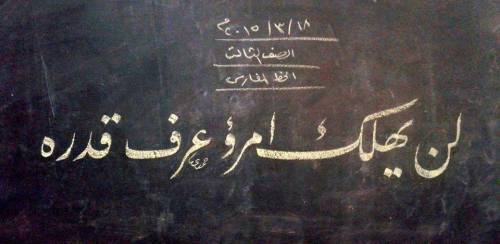 ٢٠١٥/٣/١٨م
الصف الثالث
الخط الفارسي
لن يهلك امرؤ عرف قدره